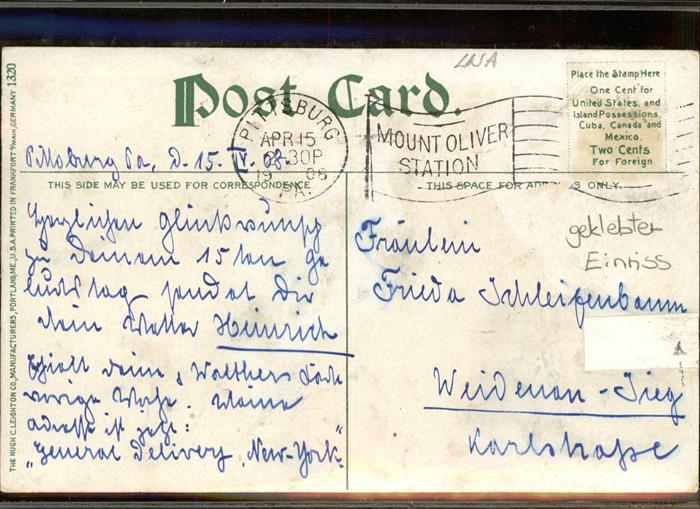 USA
Post Card.
Place the Stamp Here
One Cent for
United States, and
Island Possessions,
Cuba, Canada and
Mexico.
Two Cents
For Foreign
PITTSBURG
APR 15
30P
MOUNT OLIVER
STATION
Pittsburg Pa, d. 15. IV. 08.
THIS SIDE MAY BE USED FOR CORRESPONDENCE
THIS SPACE FOR ADDRESS ONLY.
Herzlichen Glückwunsch
zu Deinem 15ten Ge
burtstag sendet Dir
Dein Vetter Heinrich
Erhielt Deine & Walthers
vorige Woche. Meine
Adresse ist jetzt:
"General Delivery, New-York"
Fräulein
Frieda Schleifenbaum
Weidenau-Sieg
Karlstraße
geklebter
Einriss
THE HUGH C. LEIGHTON CO., MANUFACTURERS, PORTLAND, ME., U.S.A. PRINTED IN FRANKFORT a/MAIN, GERMANY 1320